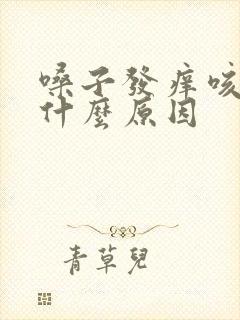 嗓子發痒咳
什麼原因
青草兒